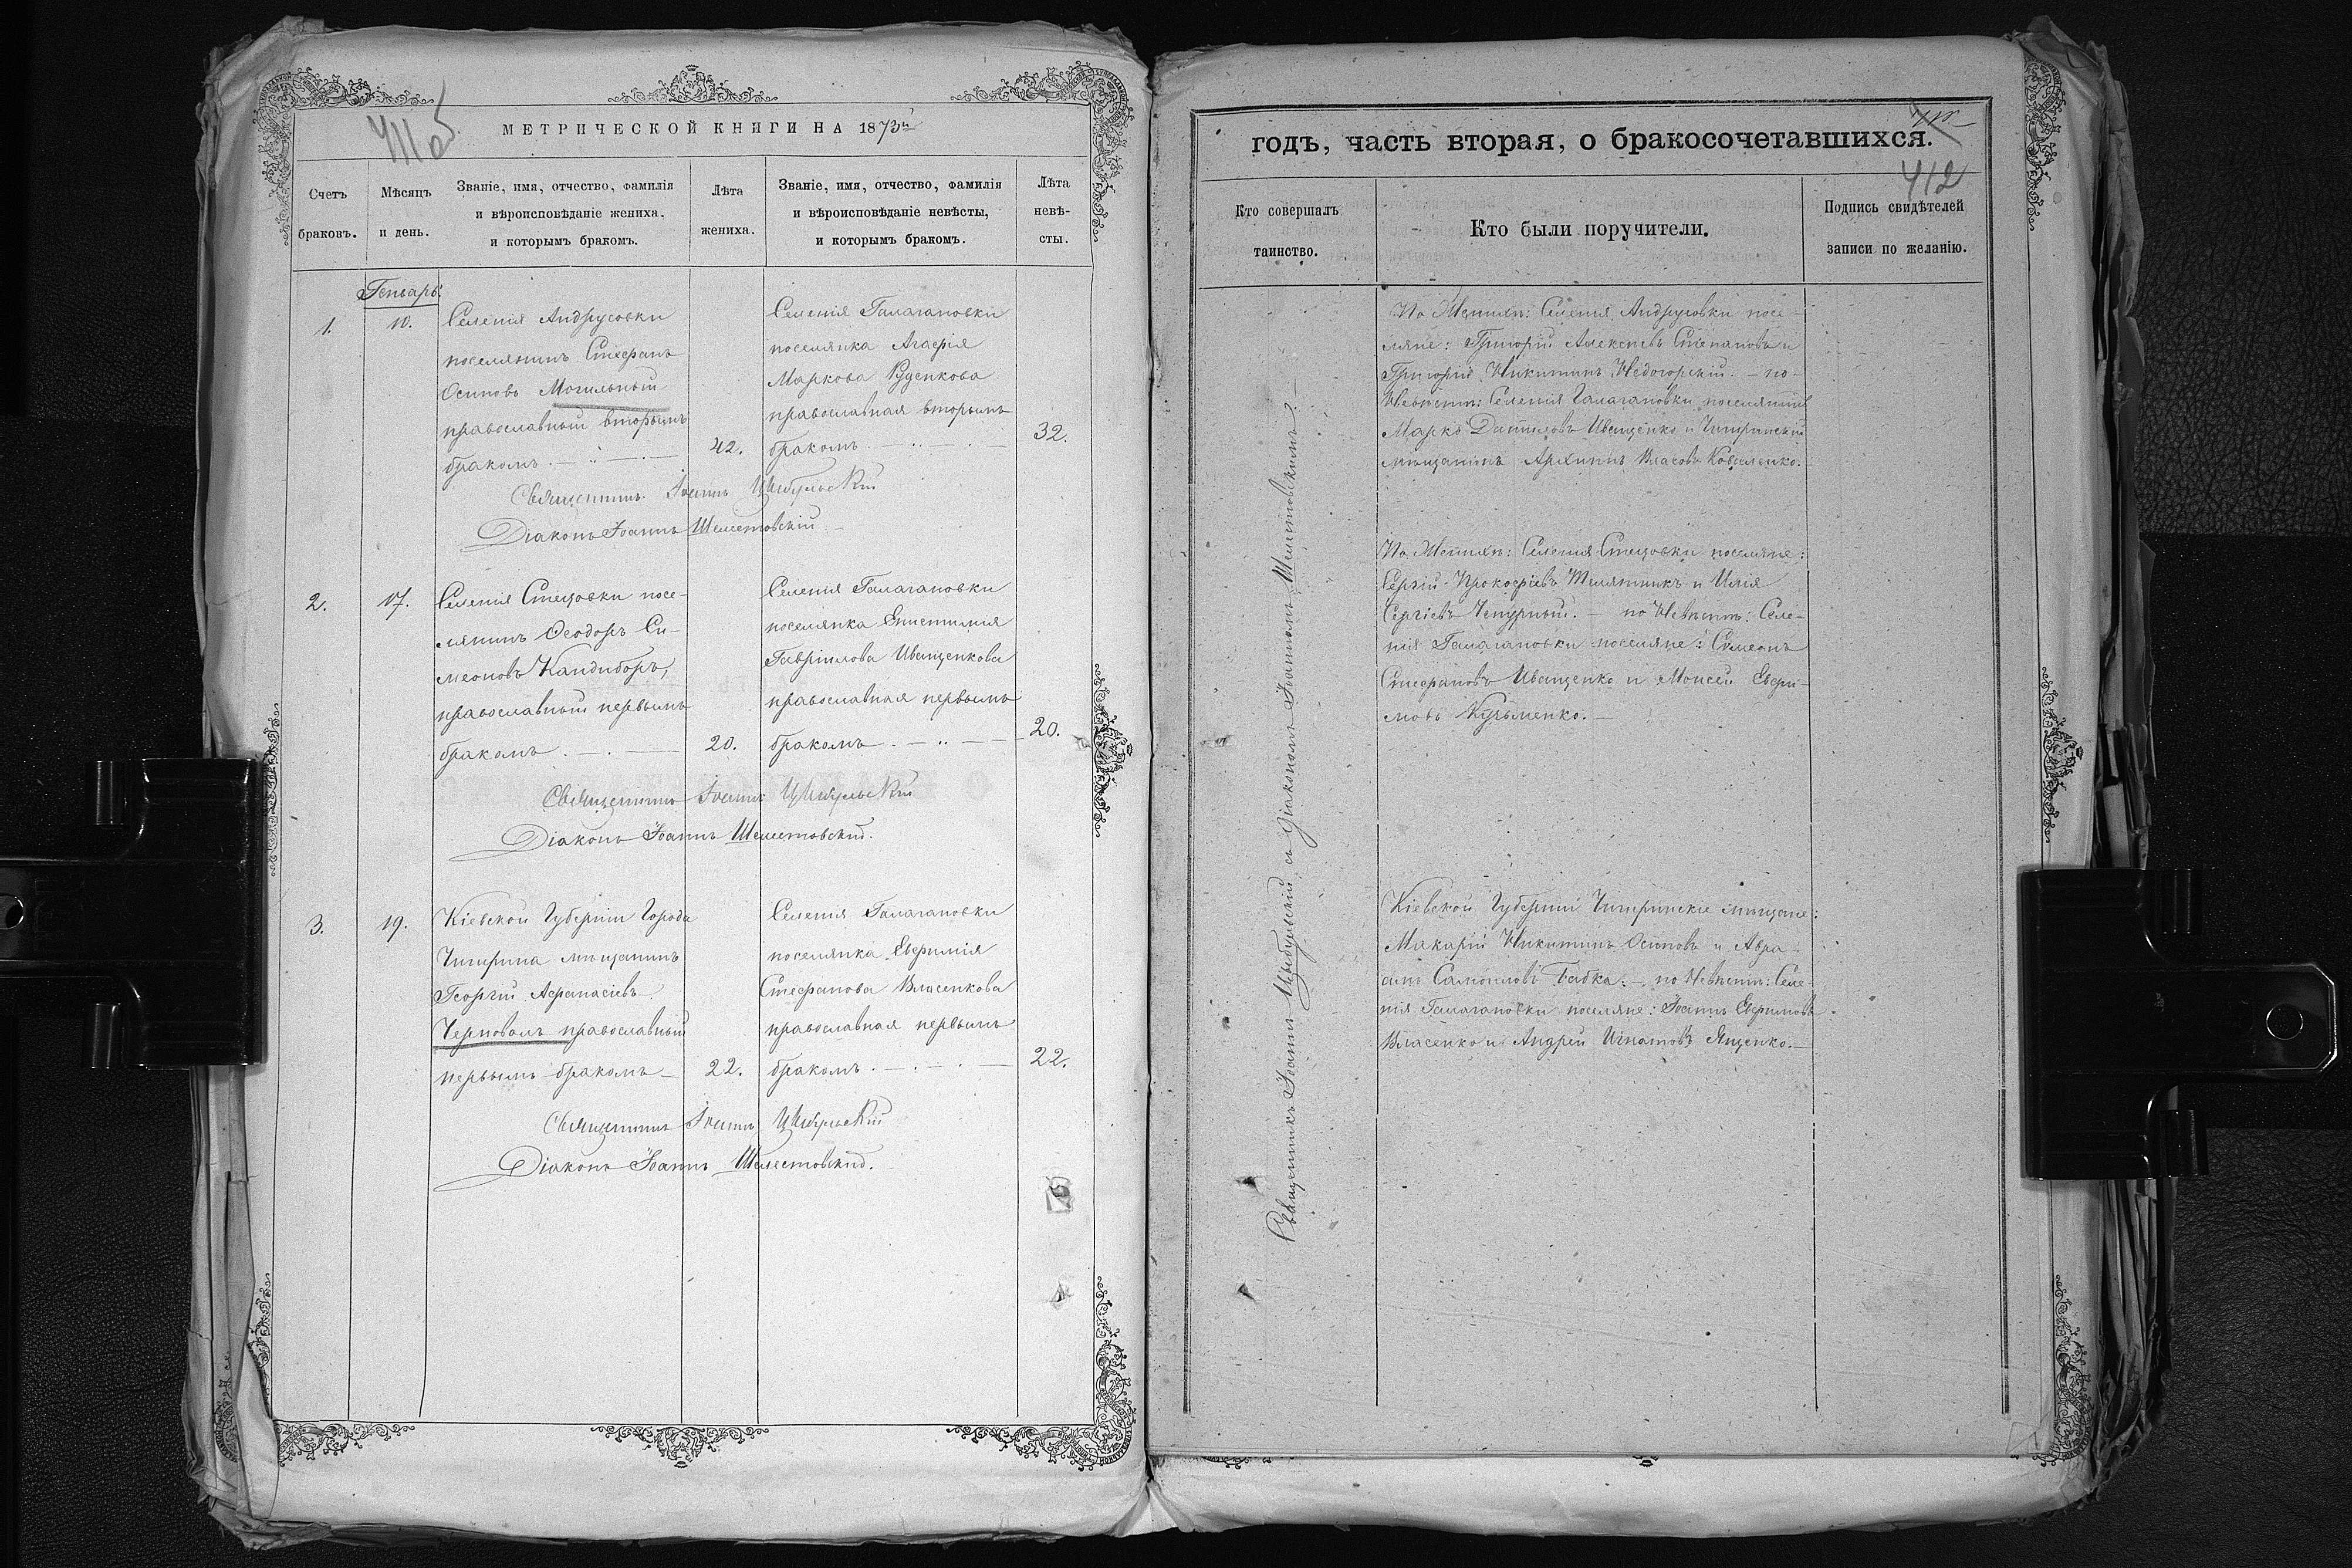 411об.
МЕТРИЧЕСКОЙ КНИГИ НА 1873й
Счетъ браковъ.
Мѣсяцъ и день.
Званіе, имя, отчество, фамилія
и вѣроисповѣданіе жениха.
и которымъ бракомъ.
Лѣта жениха.
Званіе, имя, отчество, фамилія
и вѣроисповѣданіе невѣсты,
и которымъ бракомъ.
Лѣта невѣ-
сты.
Генварь.
1.
10.
Селенія Андрусовки
поселянинъ Стефанъ
Осиповъ Могильный
православный вторымъ
бракомъ.
42.
Селенія Галагановки
поселянка Агафія
Маркова Руденкова
православная вторымъ
бракомъ
32.
Священникъ Іоаннъ Цыбульскій
Діаконъ Іоаннъ Шелестовскій
2.
17.
Селенія Стецовки посе-
лянинъ Ѳеодоръ Си-
меоновъ Кандиборъ,
православный первымъ
бракомъ
20.
Селенія Галагановки
поселянка Епистимія
Гавріилова Иващенкова
православная первымъ
бракомъ
20.
Священникъ Іоаннъ Цыбульскій
Діаконъ Іоаннъ Шелестовскій.
3.
19.
Кіевской Губерніи Города
Чигирина мѣщанинъ
Георгій Аѳанасіевъ
Черноволъ православный
первымъ бракомъ
22.
Селенія Галагановки
поселянка Евфимія
Стефанова Власенкова
православная первымъ
бракомъ
22.
Священникъ Іоаннъ Цыбульскій
Діаконъ Іоаннъ Шелестовскій.
годъ, часть вторая, о бракосочетавшихся.
412
Кто совершалъ
таинство.
Кто были поручители.
Подпись свидѣтелей
записи по желанію.
Священникъ Іоаннъ Цыбульскій, съ Діакономъ Іоанномъ Шелестовскимъ.
По Женихѣ: Селенія Андрусовки посе-
ляне: Григорій Алексіевъ Степановъ и
Григорій Никитинъ Недогорскій. — по
Невѣстѣ: Селенія Галагановки поселянинъ
Марко Даниловъ Иващенко и Чигиринскій
мѣщанинъ Архипъ Власовъ Коваленко.
По Женихѣ: Селенія Стецовки поселяне:
Сергій Прокофіевъ Телятникъ и Илія
Сергіевъ Чепурный. — по Невѣстѣ: Селе-
нія Галагановки поселяне: Симеонъ
Стефановъ Иващенко и Моисей Евфи-
мовъ Кузьменко.
Кіевской Губерніи Чигиринскіе мѣщане:
Макарій Никитинъ Осиповъ и Авра-
амъ Самойловъ Бабка. — по Невѣстѣ: Селе-
нія Галагановки поселяне: Іоаннъ Евфимовъ
Власенко и Андрей Игнатовъ Ященко.